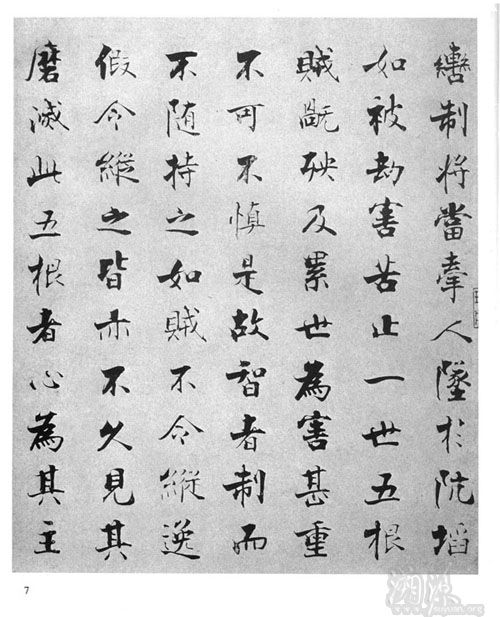 轡制將當牽人墜於阬埳
如被劫害苦止一世五根
賊既殃及累世為害甚重
不可不慎是故智者制而
不随持之如賊不令縱逸
假令縱之皆亦不久見其
磨滅此五根者心為其主
7
yuyuan.org